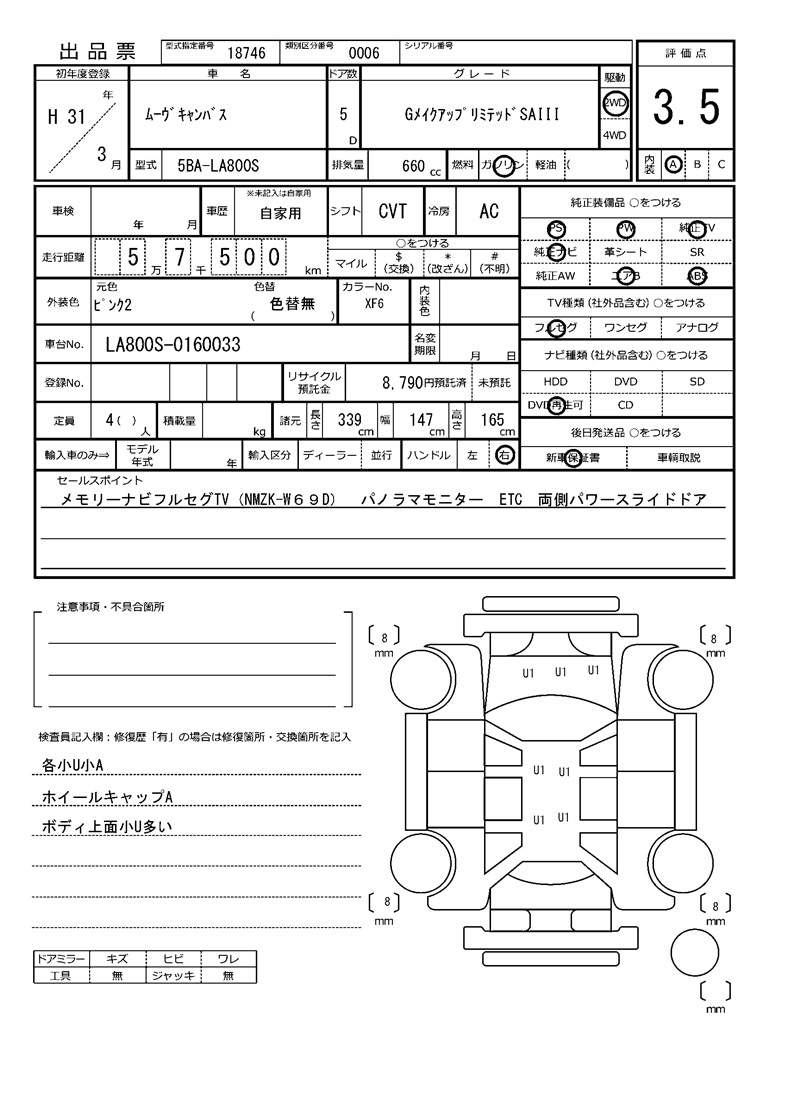 出品票
型式指定番号 18746 類別区分番号 0006 シリアル番号
評価点
3.5
内装 A B C
初年度登録 車名 ドア数 グレード 駆動
H 31 年 3 月
ムーヴキャンバス
5 D
GメイクアップリミテッドSAIII
2WD
4WD
型式 5BA-LA800S 排気量 660 cc 燃料 ガソリン 軽油 ( )
車検 年 月 車歴 ※未記入は自家用 自家用 シフト CVT 冷房 AC
走行距離 5 万 7 千 5 0 0 km
○をつける
マイル $ (交換) * (改ざん) # (不明)
外装色 元色 ピンク2 色替 ( 色替無 ) カラーNo. XF6 内装色
車台No. LA800S-0160033 名変期限 月 日
登録No. リサイクル預託金 8,790円預託済 未預託
定員 4( ) 人 積載量 kg 諸元 長さ 339 cm 幅 147 cm 高さ 165 cm
輸入車のみ⇒ モデル年式 年 輸入区分 ディーラー 並行 ハンドル 左 右
純正装備品 ○をつける
PS PW 純正TV
純正ナビ 革シート SR
純正AW エアB ABS
TV種類(社外品含む)○をつける
フルセグ ワンセグ アナログ
ナビ種類(社外品含む)○をつける
HDD DVD SD
DVD再生可 CD
後日発送品 ○をつける
新車保証書 車輌取説
セールスポイント
メモリーナビフルセグTV(NMZK-W69D) パノラマモニター ETC 両側パワースライドドア
注意事項・不具合箇所
検査員記入欄:修復歴「有」の場合は修復箇所・交換箇所を記入
各小U小A
ホイールキャップA
ボディ上面小U多い
ドアミラー キズ ヒビ ワレ
工具 無 ジャッキ 無
〔 8 〕 mm
〔 8 〕 mm
U1 U1 U1
U1 U1
U1 U1
〔 8 〕 mm
〔 8 〕 mm
〔 〕 mm